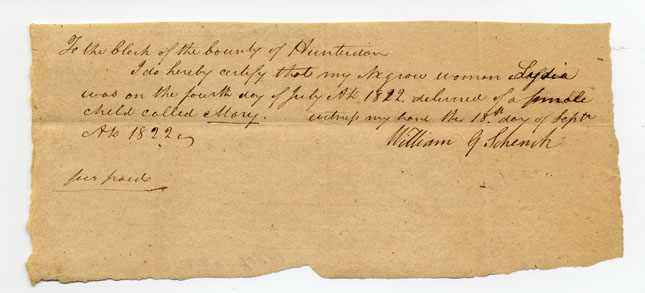 To the Clerk of the County of Hunterdon
I do hereby certify that my Negrow woman Lydia
was on the fourth day of July AD 1822 delivered of a female
child called Mary. witness my hand the 18th day of Septr
AD 1822
William G Schenck
fees paid